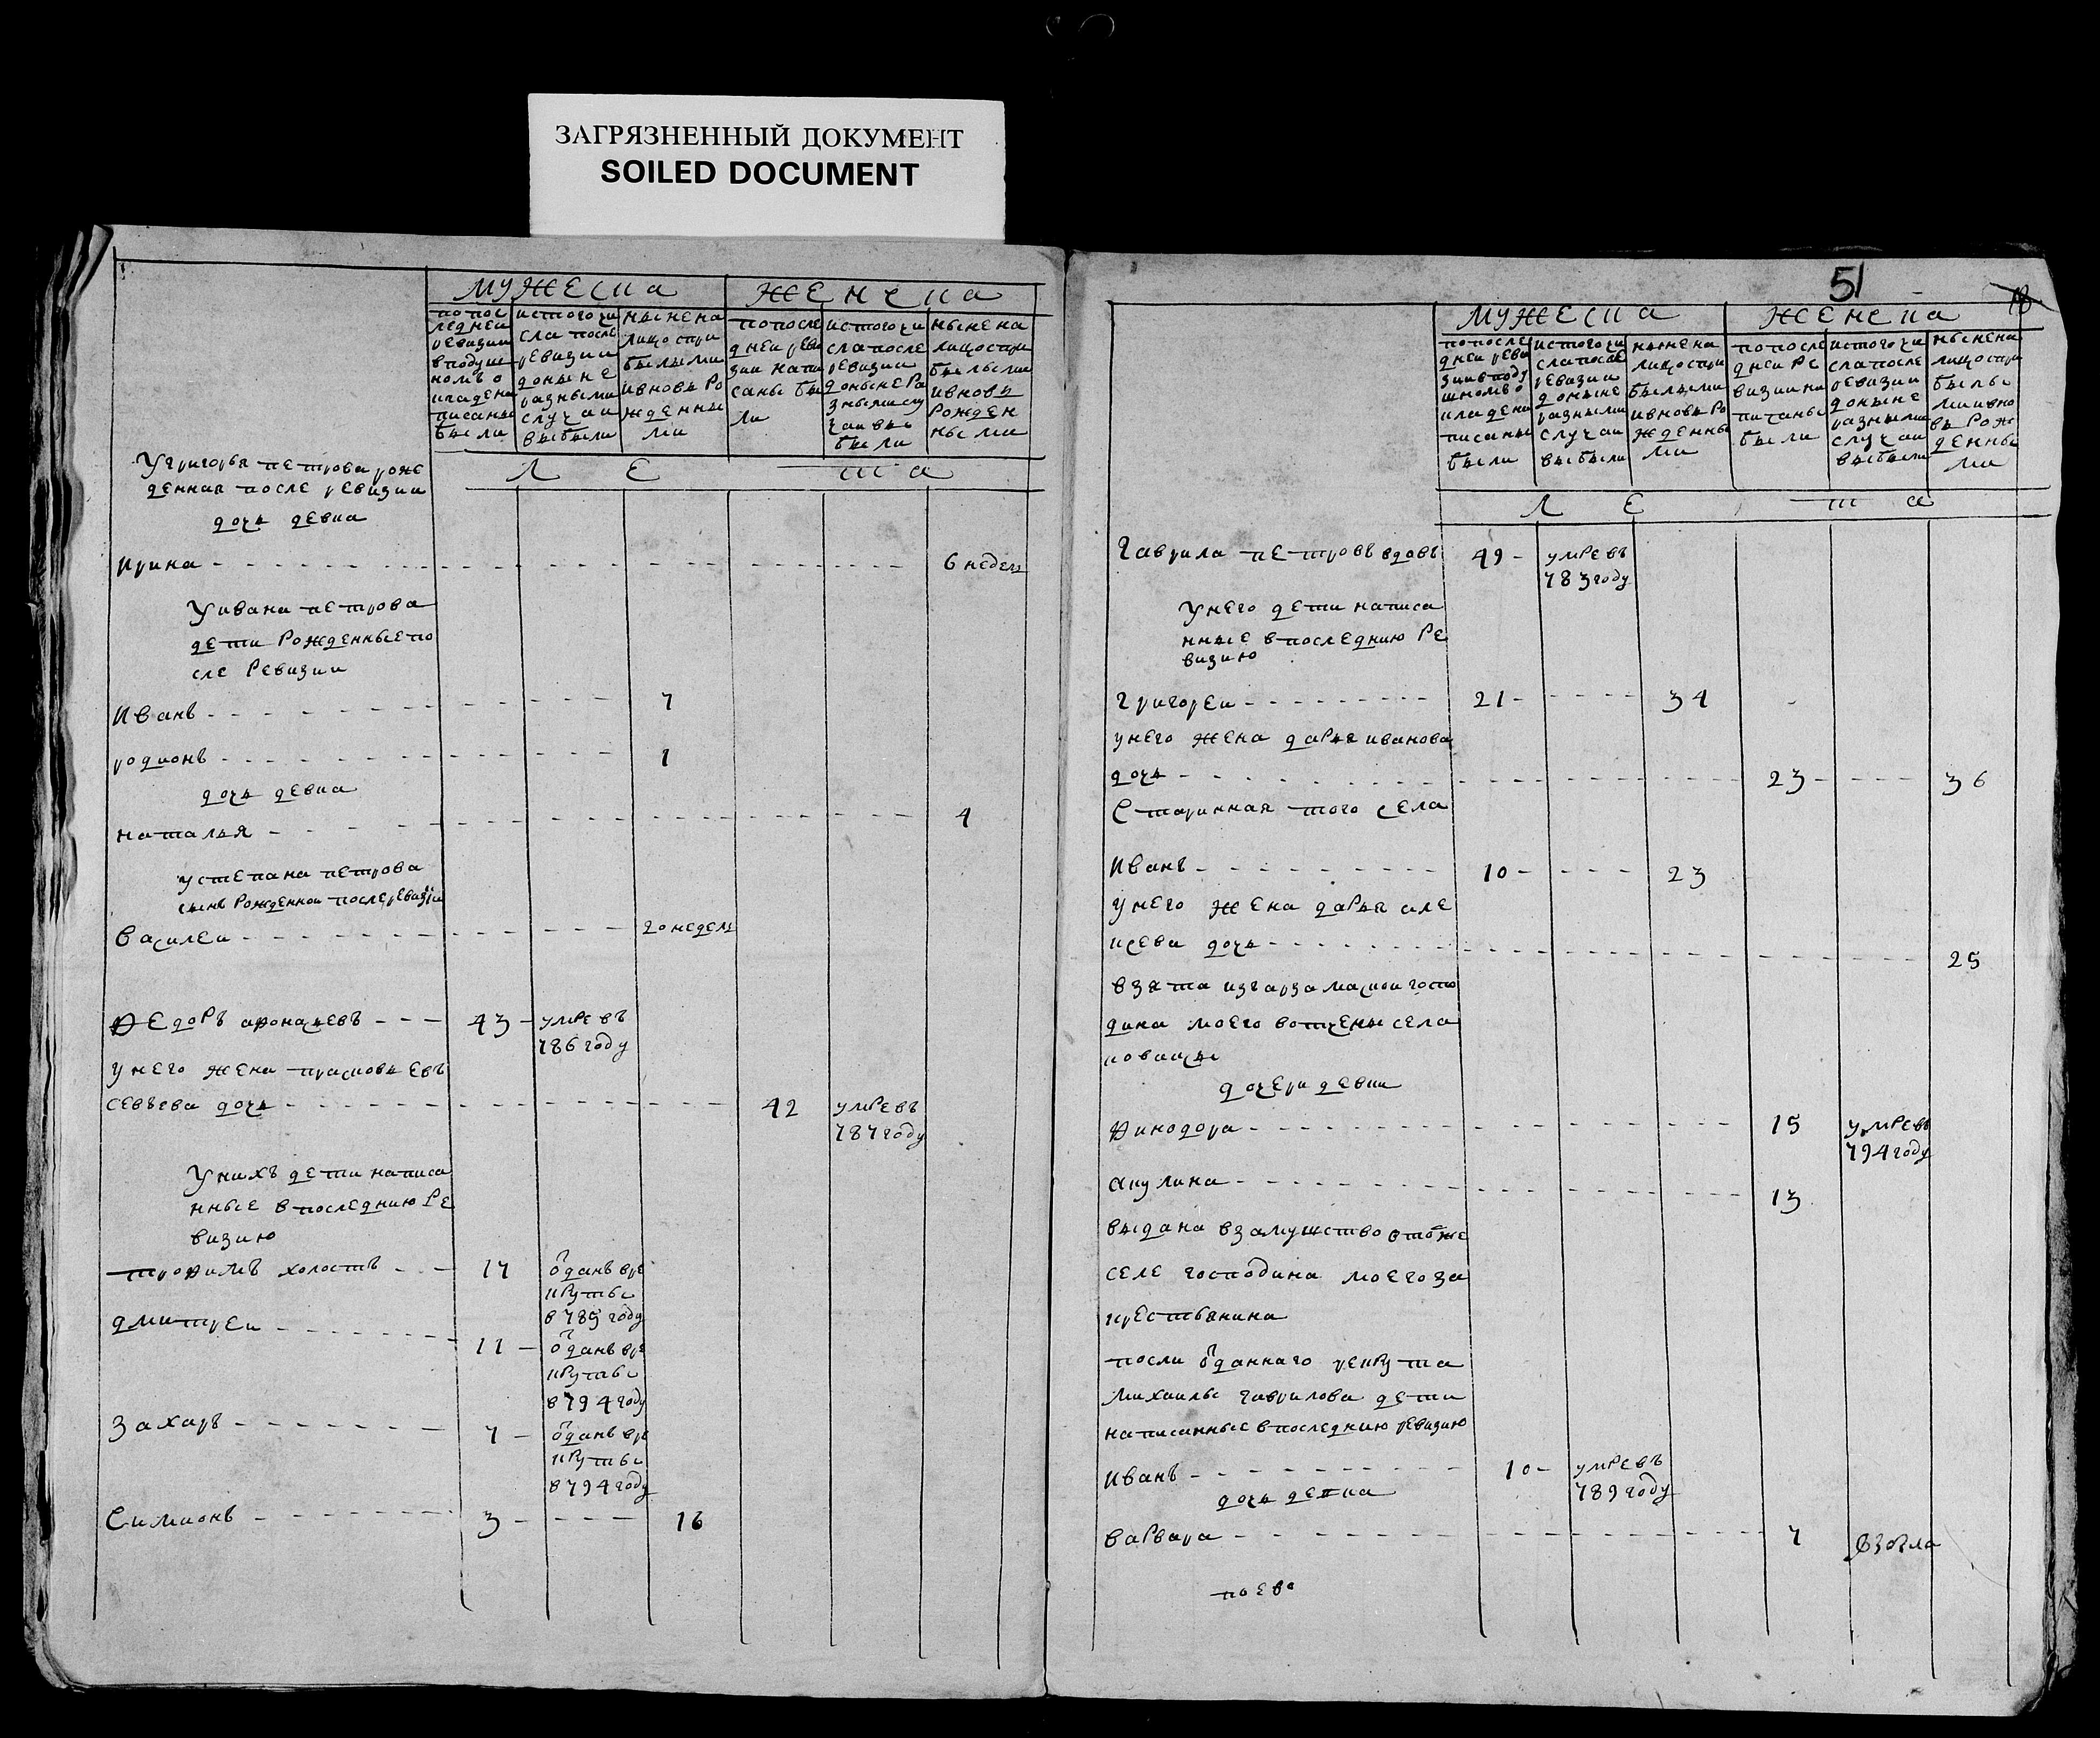 ЗАГРЯЗНЕННЫЙ ДОКУМЕНТ
SOILED DOCUMENT
мужеска
женска
попос
ледней
ревизии
в подуш
номъ о
кладена
писаны
были
истогочи
сла после
ревизии
доныне
разными
случаи
выбыли
ныне на
лицо спри
былыми
ивновь ро
жденны
ми
попосле
дней реви
зии напи
саны бы
ли
истогочи
сла после
ревизии
доныне ра
зными слу
чаи вы
были
ныне на
лицо спри
былыми
ивновь
рожден
ными
лета
У григорья петрова рож
денная после ревизии
дочь девка
ирина 6 недел
У ивана петрова
дети рожденные по
сле ревизии
иванъ 7
родионъ 1
дочь девка
наталья 4
у степана петрова
сынъ рожденной после ревизіи
василеи 20 недел
Ѳедоръ аѳонасьевъ 43 умре въ
786 году
у него жена прасковья евъ
севъева дочь 42 умре въ
787 году
У нихъ дети написа
нные в последнию ре
визию
троѳимъ холостъ 17 oтданъ вре
круты
в 785 году
дмитреи 11 отданъ вре
круты
в 794 году
захаръ 7 отданъ вре
круты
в 794 году
Симионъ 3 16
51
18
мужеска
женска
попосле
дней реви
зии в поду
шномъ о
кладена
писаны
были
истогочи
сла после
ревизии
доныне
разными
случаи
выбыли
ныне на
лицо спри
былыми
ивновь ро
жденны
ми
попосле
дней ре
визии на
писаны
были
истогочи
сла после
ревизии
доныне
разными
случаи
выбыли
ныне на
лицо спри
былы
ми ивно
вь рож
денны
ми
лета
Гаврила петровъ вдовъ 49 умре въ
783 году
У него дети написа
нные в последнию ре
визию
григореи 21 34
у него жена дарья иванова
дочь 23 36
Старинная того села
иванъ 10 23
у него жена дарья але
ксева дочь 25
взята изъ арзамаской госпо
дина моего вотчены села
дочери девки
Ѳинодора 15 умре въ
794 году
акулина 13
выдана взамужство в томже
селе господина моего за
крестьянина
посли отданнаго рекрута
михаилы гаврилова дети
написанные в последнию ревизию
иванъ 10 умре въ
789 году
дочь девка
варвара 7